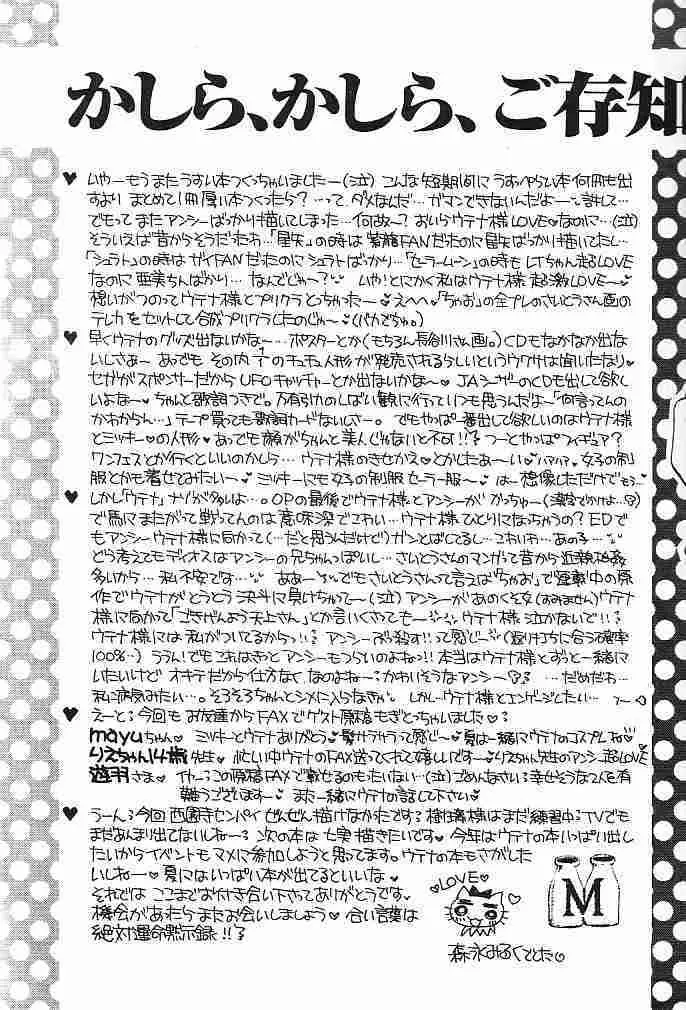 かしら、かしら、ご存知
♥ いやーもうまたうすい本つくっちゃいましたー(泣) こんな短期間にうすっぺらい本何冊も出
すより まとめて1冊厚い本つくったら?…って。ダメなんだ…ガマンできないんだよー…許して…
でもって またアンシーばっかり描いてしまった…何故〜? おいらウテナ様LOVE♡なのに…(泣)
そういえば昔からそうだったわ…「星矢」の時は紫龍FANだったのに星矢ばっかり描いてたし…
「シュラト」の時はガイFANだったのにシュラトばっかり…「セーラームーン」の時も LTちゃん超LOVE
なのに亜美ちんばっかり…なんでじゃー? いや!とにかく私はウテナ様超激LOVE〜♡
想いがつのってウテナ様とプリクラとっちった〜♡えへへ。「ちゃお」の全プレのさいとうさん画の
テレカをセットして合成プリクラしたのじゃ〜♡(バカでちゅ。)
♥ 早くウテナのグッズ出ないかな〜…ポスターとか(もちろん長谷川さん画。)CDもなかなか出な
いしさぁー あっでも その内チュチュ人形が発売されるらしいというウワサは聞いたなり♡
セガがスポンサーだから UFOキャッチャーとか出ないかな〜♡ JAシーザーのCDも出して欲し
いよな〜♡ちゃんと歌詞つきで。万有引力のしばい観に行っていつも思うんだよ〜「何言ってんの
かわからん…」テープ買っても歌詞カードないしさー。でもやっぱ一番出して欲しいのはウテナ様
とミッキー♡の人形♡あっでも顔がちゃんと美人じゃないと不可!! つーとやっぱフィギュア?
ワンフェスとか行くといいのかしら…ウテナ様のきせかえ♡とかしたあ〜い♡ハアハア。女子の制
服とかも着せてみたいー♡ ミッキーにも女子の制服セーラー服〜♡ はー想像しただけでもう…
♥ しかし「ウテナ」ナゾが多いよ…。OPの最後でウテナ様とアンシーが がっちゅー(漢字でかけよ)
で馬にまたがって戦ってんのは意味深でこわい…ウテナ様ひとりになっちゃうの? EDで
もアンシーウテナ様に向かって(…だと思うんだけど)ガンとばしてるし…こわいわ…あの子…
どう考えてもディオスはアンシーの兄ちゃんっぽいし…さいとうさんのマンガって昔から近親相姦
多いから…私不安です… ああー でもさいとうさんって言えば「ちゃお」で連載中の原
作でウテナがとうとう決斗に負けちゃって〜(泣)アンシーがあのくそ女(すみません)ウテナ
様に向かって「ごきげんよう天上さん」とか言いくさっても〜 ウテナ様泣かないで!!
ウテナ様には私がついてるから!! アンシーぶっ殺す!!って感じ〜(返り討ちに合う確率
100%…) ううん!でもこれはきっとアンシーもつらいのよねっ!!本当はウテナ様とずっと一緒に
いたいけど オキテだから仕方なく なのよねー かわいそうなアンシー …だめだわ…
私に病気みたい…。そろそろちゃんとシメに入らなきゃ。しかしウテナ様とエンゲージしたい…
♥ えーと 今回もお友達からFAXでゲスト原稿もぎとっちゃいました♡
mayuちゃん♡ ミッキーとウテナありがとう♡髪サラサラって感じ〜♡夏は一緒にウテナのコスプレね♡
りえちゃん14歳先生♡ 忙しい中ウテナのFAX送ってくれて嬉しいですー♡りえちゃん先生のアンシー超LOVE♡
遊羽さま♡ イヤーこの原稿FAXで載せるのもったいない…(泣)ごめんなさい 幸せそうな2人を有
難うございますー♡ また一緒にウテナの話して下さい♡
♥ うーん 今回 西園寺センパイ ぜんぜん描けなかったです 樹璃様はまだ練習中 TVでも
まだあんまり出てないしね〜 次の本は七実描きたいです♡ 今年はウテナの本いっぱい出し
たいからイベントもマメに参加しようと思ってます。ウテナの本もさがした
いしねー♡夏にはいっぱい本が出てるといいな♡
それでは ここまでお付き合い下さってありがとうです。
機会があったら またお会いしましょう♡ 合い言葉は
絶対運命黙示録!!
♡LOVE♡
M
森永みるくでした♡